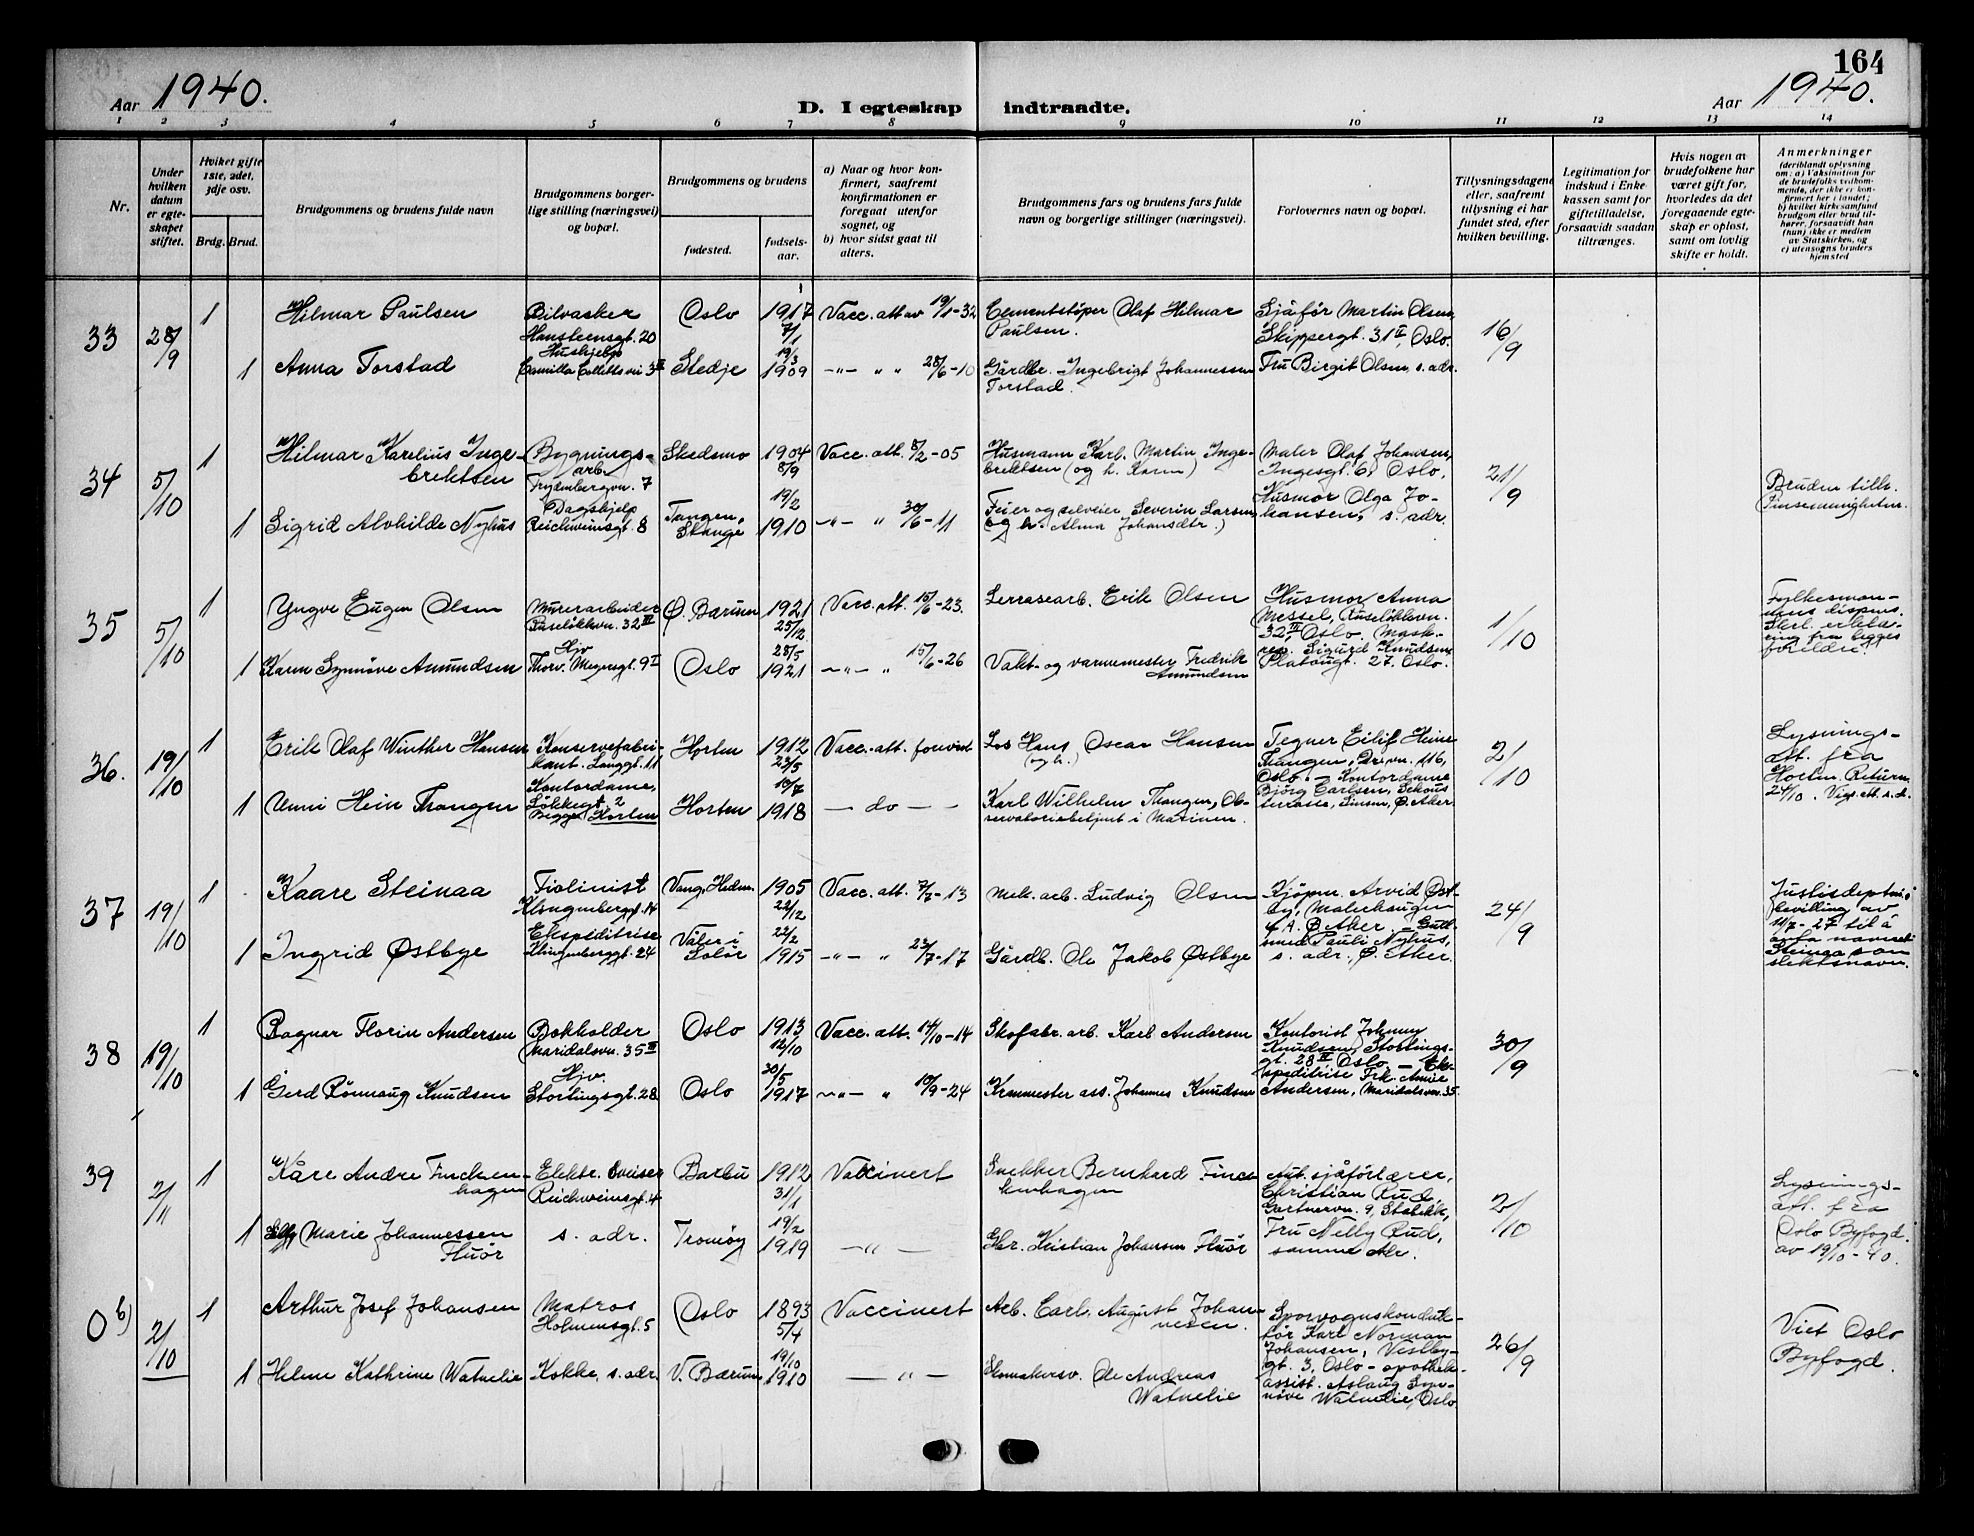 164
Aar 1940.
D. I egteskap indtraadte.
Aar 1940.
1 2 3 4 5 6 7 8 9 10 11 12 13 14
Nr.
Under hvilken datum er egteskapet stiftet.
Hvilket gifte 1ste, 2det, 3dje osv.
Brdg. Brud.
Brudgommens og brudens fulde navn
Brudgommens borgerlige stilling (næringsvei) og bopæl.
Brudgommens og brudens
fødested.
fødselsaar.
a) Naar og hvor konfirmert, saafremt konfirmationen er foregaat utenfor sognet, og
b) hvor sidst gaat til alters.
Brudgommens fars og brudens fars fulde navn og borgerlige stillinger (næringsvei).
Forlovernes navn og bopæl.
Tillysningsdagene eller, saafremt tillysning ei har fundet sted, efter hvilken bevilling.
Legitimation for indskud i Enkekassen samt for giftetilladelse, forsaavidt saadan tiltrænges.
Hvis nogen av brudefolkene har været gift før, hvorledes da det foregaaende egteskap er opløst, samt om lovlig skifte er holdt.
Anmerkninger
(deriblandt oplysning om: a) Vaksination for de brudefolks vedkommende, der ikke er konfirmert her i landet; b) hvilket kirkesamfund brudgom eller brud tilhører, forsaavidt han (hun) ikke er medlem av Statskirken, og c) utensogns bruders hjemsted
33 28/9 1 Hilmar Paulsen Bilvasker Hansteensgt. 20 Oslo 1917 7/1 Vacc. att av 19/1-32 Cementstøper Olaf Hilmar Paulsen. Sjåfør Martin Olsen, Skippergt. 31 II, Oslo. 16/9
1 Anna Torstad Hushjelp Camilla Colletts vei 3 II Stedje 19/3 1909 -"- " " 28/6-10 Gårdbr. Ingebrigt Johannessen Torstad. Fru Birgit Olsen, s. adr.
34 5/10 1 Hilmar Karelius Ingebrektsen Bygningsarb. Frydenbergvn. 7 Skedsmo 1904 8/9 Vacc. att. 8/2-05 Husmann Karl Martin Ingebrektsen (og h. Karen) Maler Olaf Johansen, Ingesgt. 6, Oslo, 21/9
1 Sigrid Alvhilde Nyhus Dagshjelp Reichweinsgt. 8 Tangen, Stange 19/2 1910 -"- " 30/6-11 Feier og selveier Severin Larsen (og h. Alma Johansdtr.) Husmor Olga Johansen, s. adr. Bruden tilh. Pinsemenigheten.
35 5/10 1 Yngve Eugen Olsen Murerarbeider Ruseløkkvn. 32 III Ø. Bærum 1921 25/12 Vacc. att. 15/6-23. Terrasearb. Erik Olsen Husmor Anna Messel, Ruseløkkvn. 32 III Oslo. Mask.rep. Sigurd Knudsen Platousgt. 27. Oslo. 1/10 Fylkesmannens dispens. Skrl. erklæring fra begges foreldre.
1 Karen Synnøve Amundsen Hjv Thorv. Meyersgt. 9 I Oslo 28/5 1921 -"- " 15/6-26 Vakt- og varmemester Fredrik Amundsen
36. 19/10 1 Erik Olaf Winther Hansen Konservefabrikant. Langgt. 11 Horten 1912 23/5 Vacc. att. forevist Los Hans Oscar Hansen (og h.) Tegner Eilif Hein Thangen, Dr.vn. 116, Oslo. - Kontordame Bjørg Carlsen, terrasse, Ø. Aker 2/10 Lysningsatt. fra Horten. Return. 24/10.
1 Unni Hein Thangen Kontordame, Løkkegt. 2 Begge Horten Horten 10/7 1918 - do - - Karl Wilhelm Thangen, Observatoriebetjent i Marinen.
37 19/10 1 Kaare Steinaa Fiolinist Klingenberggt. 14 Vang, Hedm. 1905 22/12 Vacc. att. 7/7-13 Mek. arb. Ludvig Olsen Kjøpm. Arvid Østby, Malerhaugen 4 A. Ø. Aker. - Gullsmed Pauli Nyhus, s. adr., Ø. Aker. 24/9 Justisdeptm.s bevilling av 11/7-27 til å anta navnet Steinaa som slektsnavn.
1 Ingrid Østbye Ekspeditrise Klingenberggt. 24 Våler i Solør 22/2 1915 -"- " 23/7-17 Gårdb. Ole Jakob Østbye
38 19/10 1 Ragnar Florin Andersen Bokholder Maridalsvn. 35 III Oslo 1913 12/10 Vacc. att. 14/10-14 Skofabr. arb. Karl Andersen Kontorist Johnny Knudsen, Stortingsgt. 28 IV Oslo - Ekspeditrise Frk. Andersen, Maridalsvn. 35. 30/9
1 Gerd Rønnaug Knudsen Hjv. Stortingsgt. 28 Oslo 30/5 1917 -"- " 19/9-24 Kranmester ass. Johannes Knudsen
39 2/11 1 Kåre Andre Finckenhagen Elektr. Sveiser Reichweinsgt. 4 Barbu 1912 31/1 Vaccinert Snekker Bernhard Finckenhagen Aut. sjåførlærer, Christian Rud, Gartnervn. 9, Stabekk, Fru Nelly Rud, samme adr. 2/10 Lysningsatt. fra Oslo Byfogd. av 19/10-40.
1 Marie Johannessen Fluør s. adr. Tromøy 19/2 1919 -"- Gbr. Kristian Johansen Fluør
0 b) 2/10 1 Arthur Josef Johansen Matros Holmensgt. 5 Oslo 1893 5/4 Vaccinert Arb. Carl August Johannesen. Sporvognskonduktør Karl Norman Johansen, Vestbygt. 3, Oslo - apothekassist. Aslaug Synnøve Watnelie, Oslo 26/9 Viet Oslo Byfogd.
1 Helene Kathrine Watnelie Kokke, s. adr. V. Bærum 19/10 1910 -"- Skomakersv. Ole Andreas Watnelie